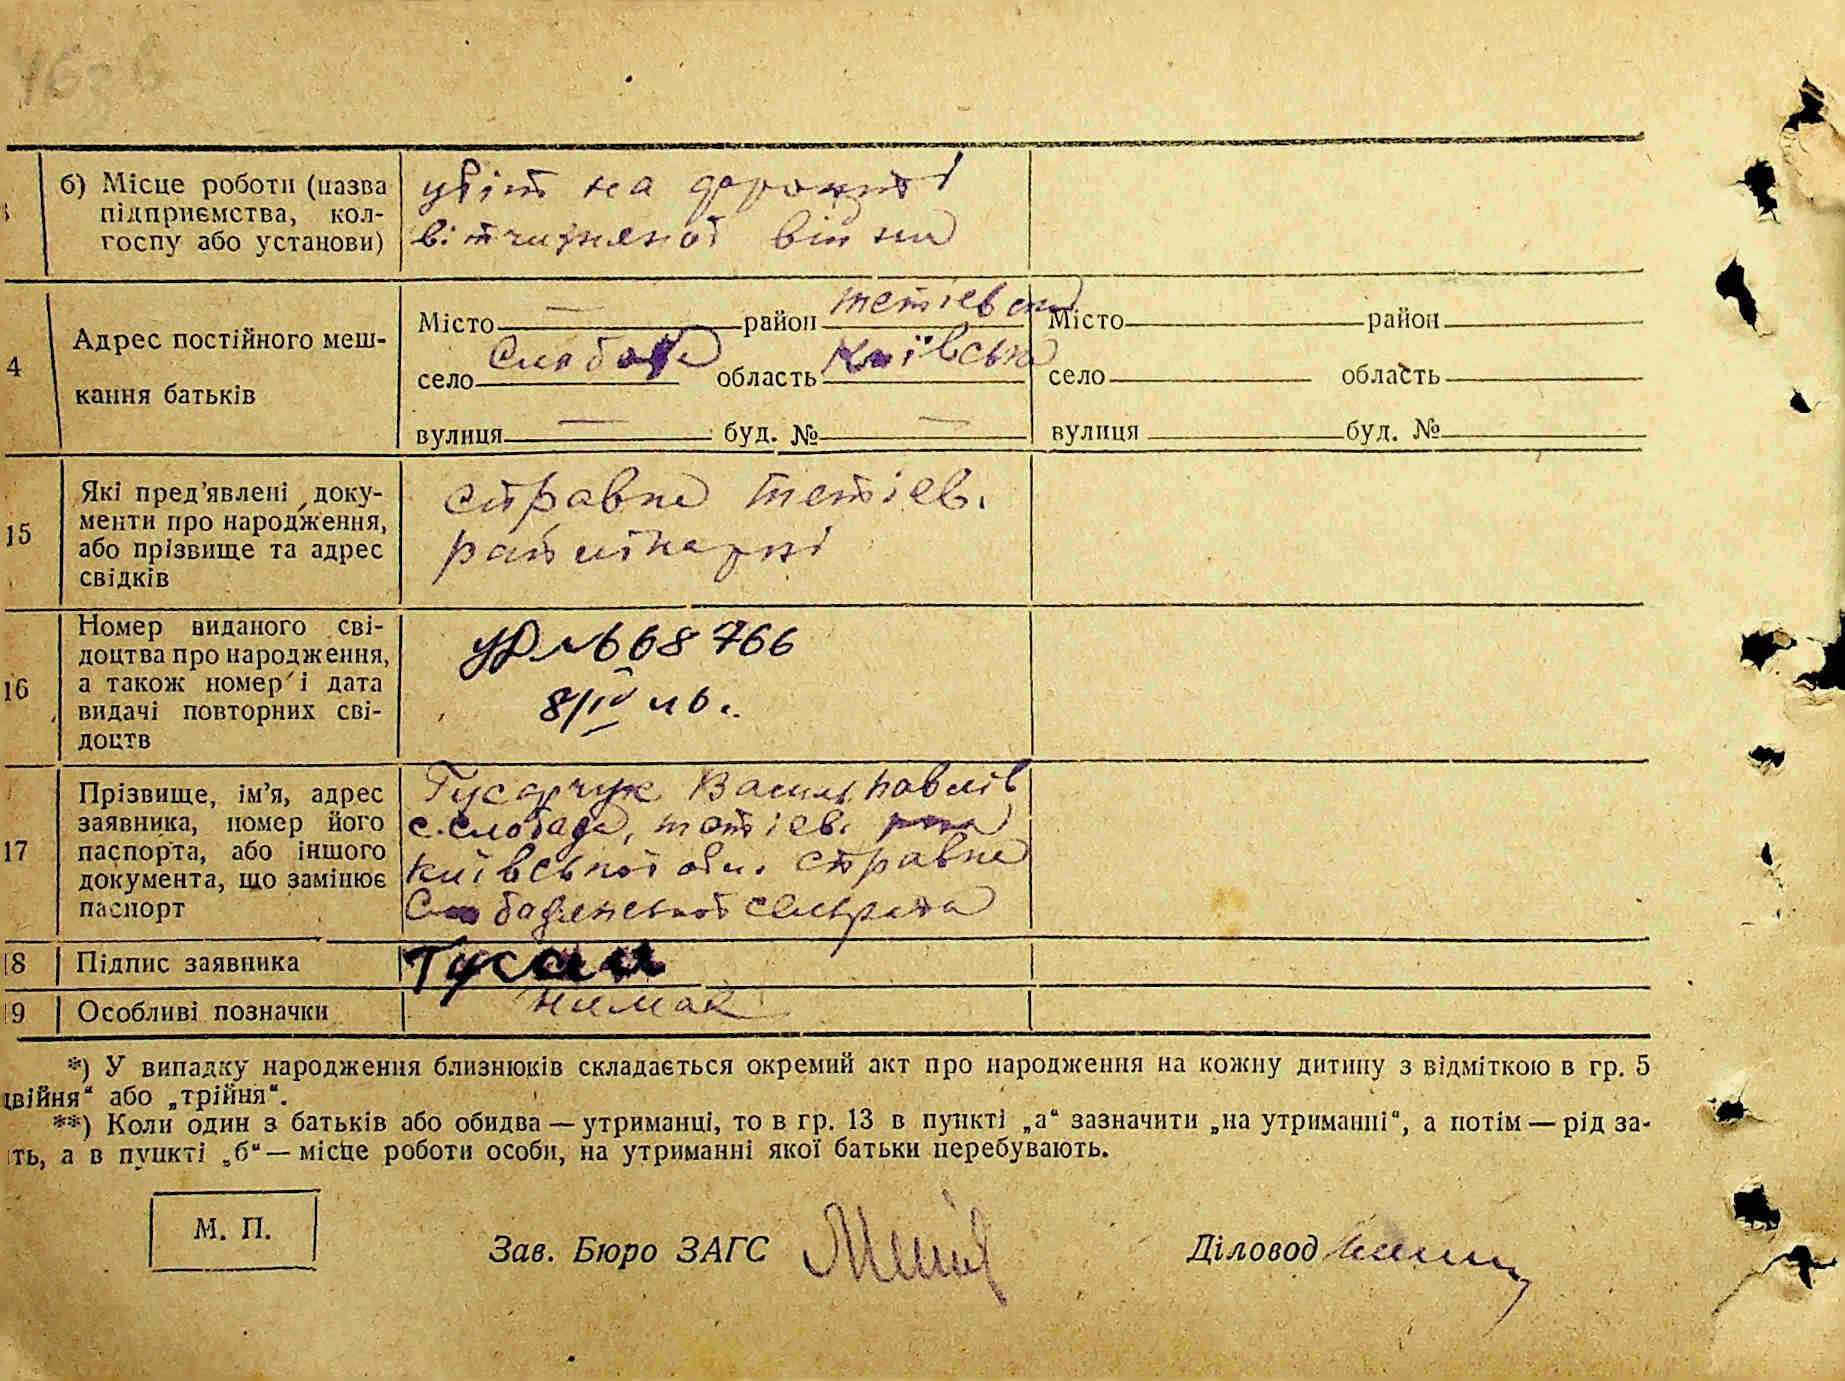 б) Місце роботи (назва
підприємства, кол-
госпу або установи)
убіт на
вітчизняної війни
4
Адрес постійного меш-
кання батьків
Місто — район Тетіевськ
село Слобода область Київська
вулиця — буд. № —
Місто район
село область
вулиця буд. №
15
Які пред'явлені доку-
менти про народження,
або прізвище та адрес
свідків
справка Тетіев.
райлікарні
16
Номер виданого сві-
доцтва про народження,
а також номер і дата
видачі повторних сві-
доцтв
668766
8/IV 46.
17
Прізвище, ім'я, адрес
заявника, номер його
паспорта, або іншого
документа, що замінює
паспорт
Гусарчук Василь Павлів
с. Слобода, Тетіев. р-на
Київської обл. справка
Слободянської сельрада
18
Підпис заявника
Гусар
19
Особливі позначки
немає
*) У випадку народження близнюків складається окремий акт про народження на кожну дитину з відміткою в гр. 5
двійня“ або „трійня“.
**) Коли один з батьків або обидва — утриманці, то в гр. 13 в пункті „а“ зазначити „на утриманні“, а потім — рід за-
ть, а в пункті „б“ — місце роботи особи, на утриманні якої батьки перебувають.
М. П.
Зав. Бюро ЗАГС
Діловод